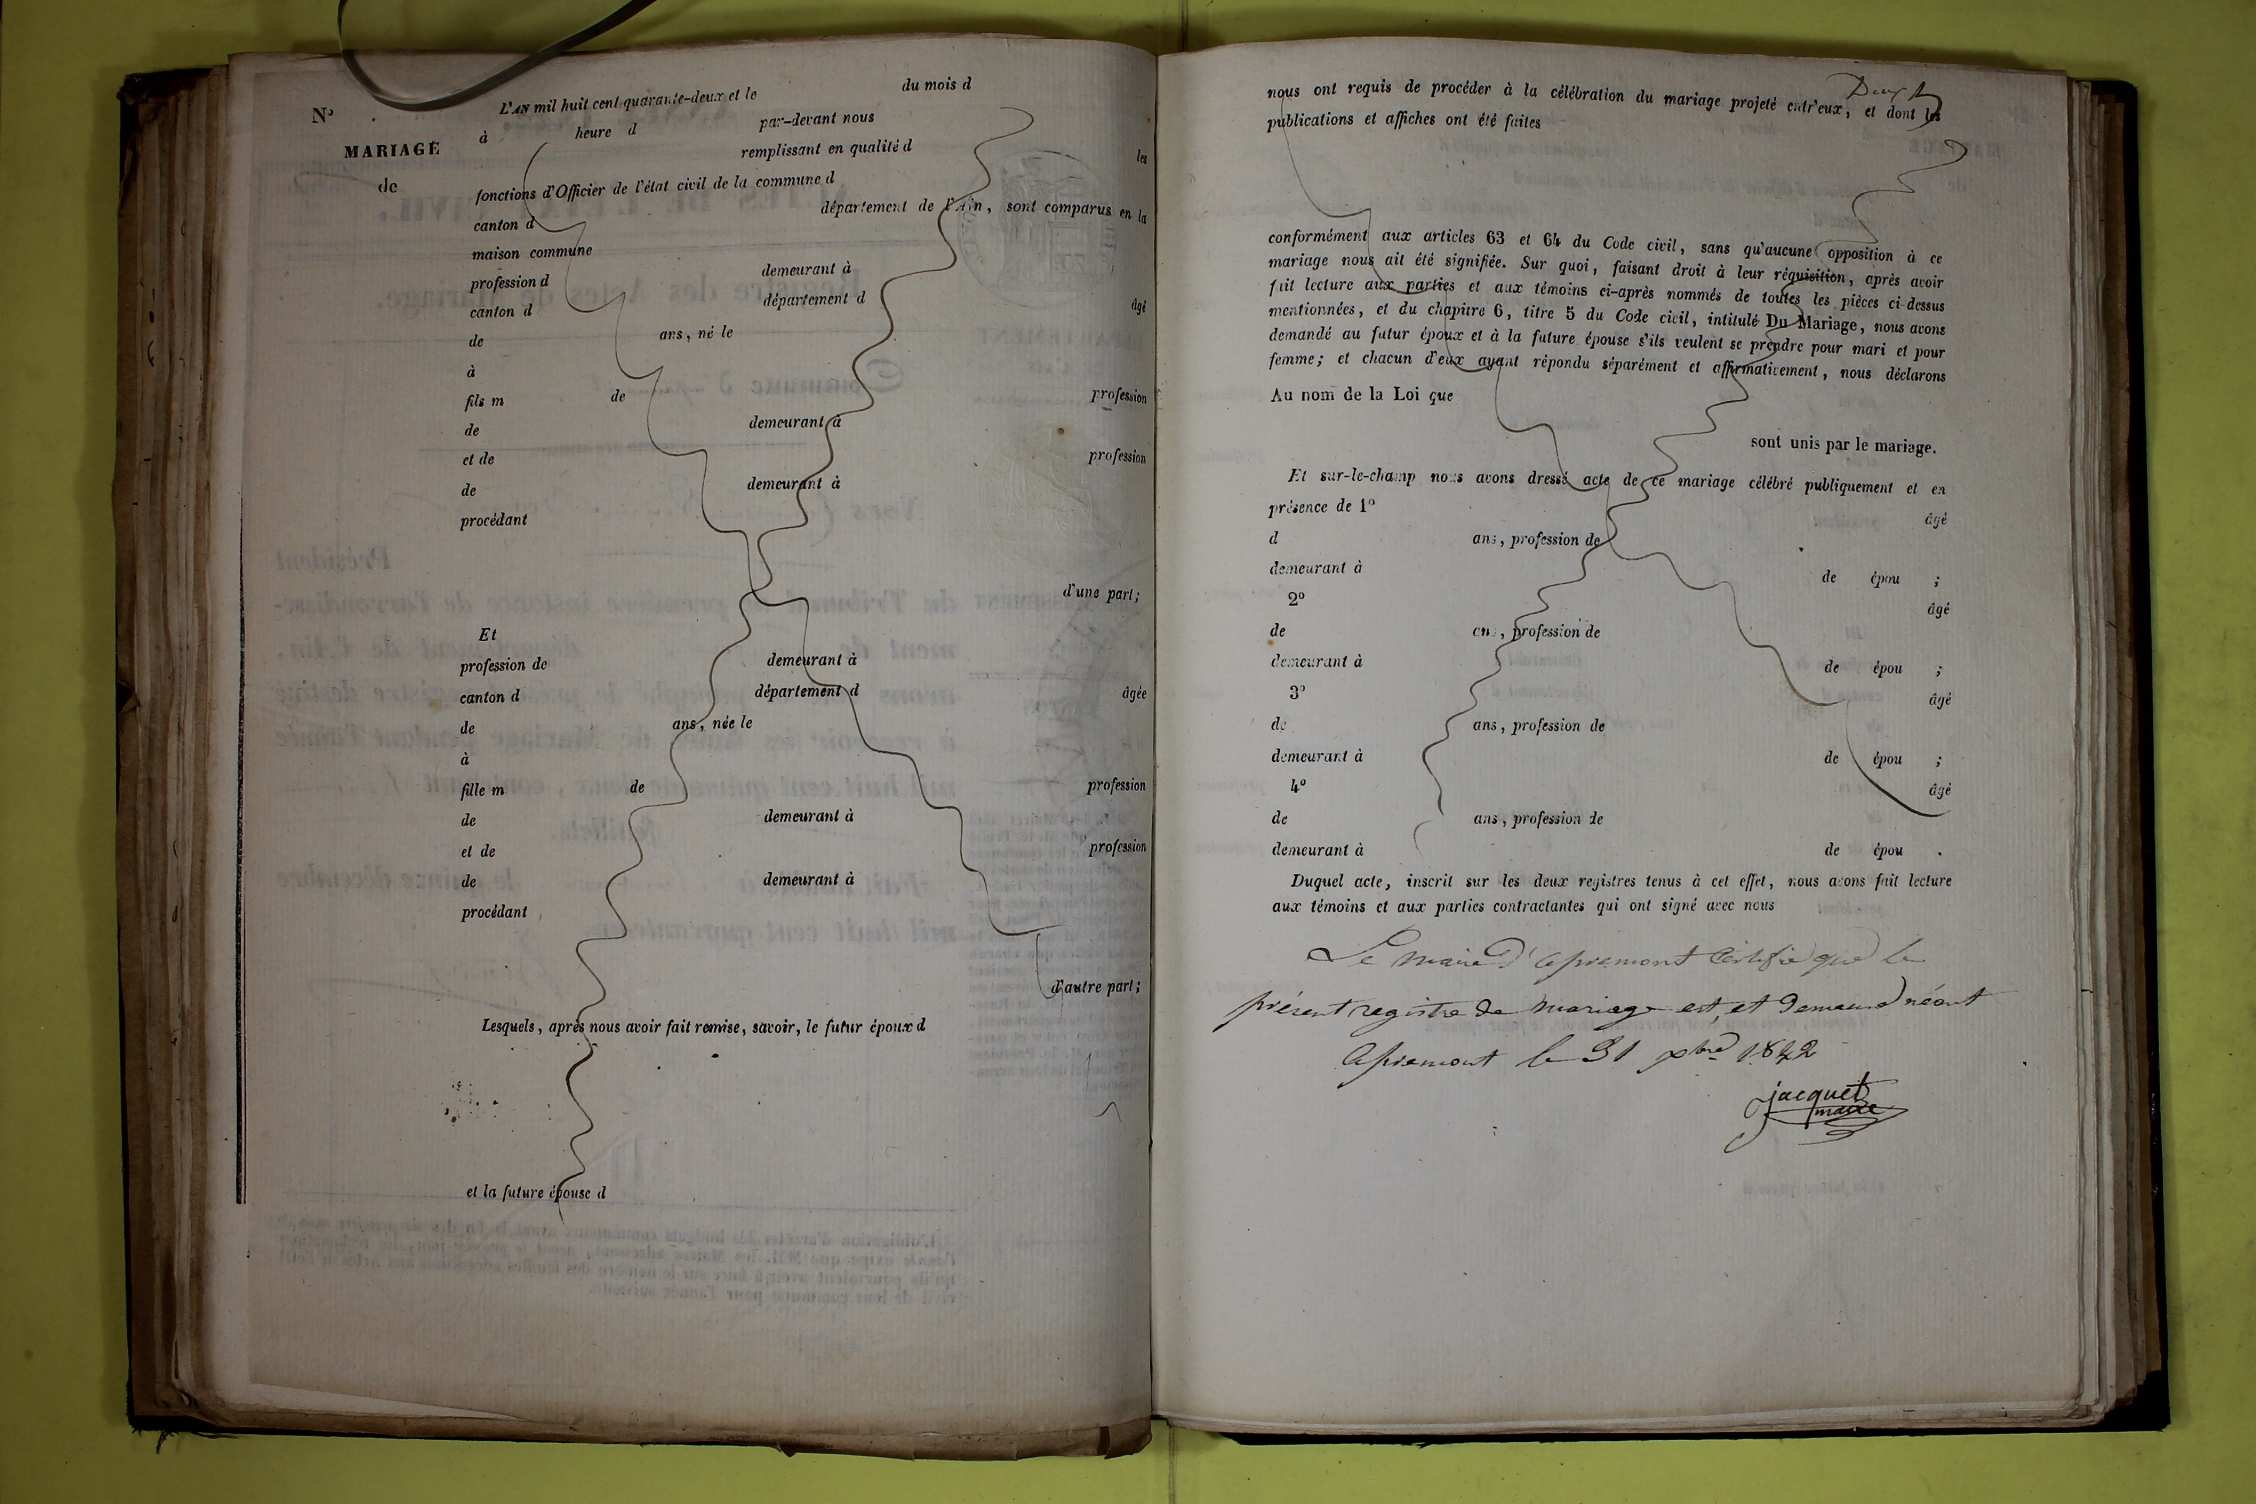 N°
MARIAGE
de
L'AN mil huit cent quarante-deux et le du mois d
à heure d par-devant nous
remplissant en qualité d les
fonctions d'Officier de l'état civil de la commune d
canton d département de l'Ain, sont comparus en la
maison commune
profession d demeurant à
canton d département d âgé
de ans, né le
à
fils m de profession
de demeurant à
et de profession
de demeurant à
procédant
d'une part;
Et
profession de demeurant à
canton d département d âgée
de ans, née le
à
fille m de profession
de demeurant à
et de profession
de demeurant à
procédant
d'autre part;
Lesquels, après nous avoir fait remise, savoir, le futur époux d
et la future épouse d
Deux
nous ont requis de procéder à la célébration du mariage projeté entr'eux, et dont les
publications et affiches ont été faites
conformément aux articles 63 et 64 du Code civil, sans qu'aucune opposition à ce
mariage nous ait été signifiée. Sur quoi, faisant droit à leur réquisition, après avoir
fait lecture aux parties et aux témoins ci-après nommés de toutes les pièces ci-dessus
mentionnées, et du chapitre 6, titre 5 du Code civil, intitulé Du Mariage, nous avons
demandé au futur époux et à la future épouse s'ils veulent se prendre pour mari et pour
femme; et chacun d'eux ayant répondu séparément et affirmativement, nous déclarons
Au nom de la Loi que
sont unis par le mariage.
Et sur-le-champ nous avons dressé acte de ce mariage célébré publiquement et en
présence de 1° âgé
d ans, profession de
demeurant à de épou ;
2° âgé
de ans, profession de
demeurant à de épou ;
3° âgé
de ans, profession de
demeurant à de épou ;
4° âgé
de ans, profession de
demeurant à de épou .
Duquel acte, inscrit sur les deux registres tenus à cet effet, nous avons fait lecture
aux témoins et aux parties contractantes qui ont signé avec nous
Le maire d'apremont certifie que le
présent registre de mariage est, et demeure néant
apremont le 31 xbre 1842
jacquet
maire